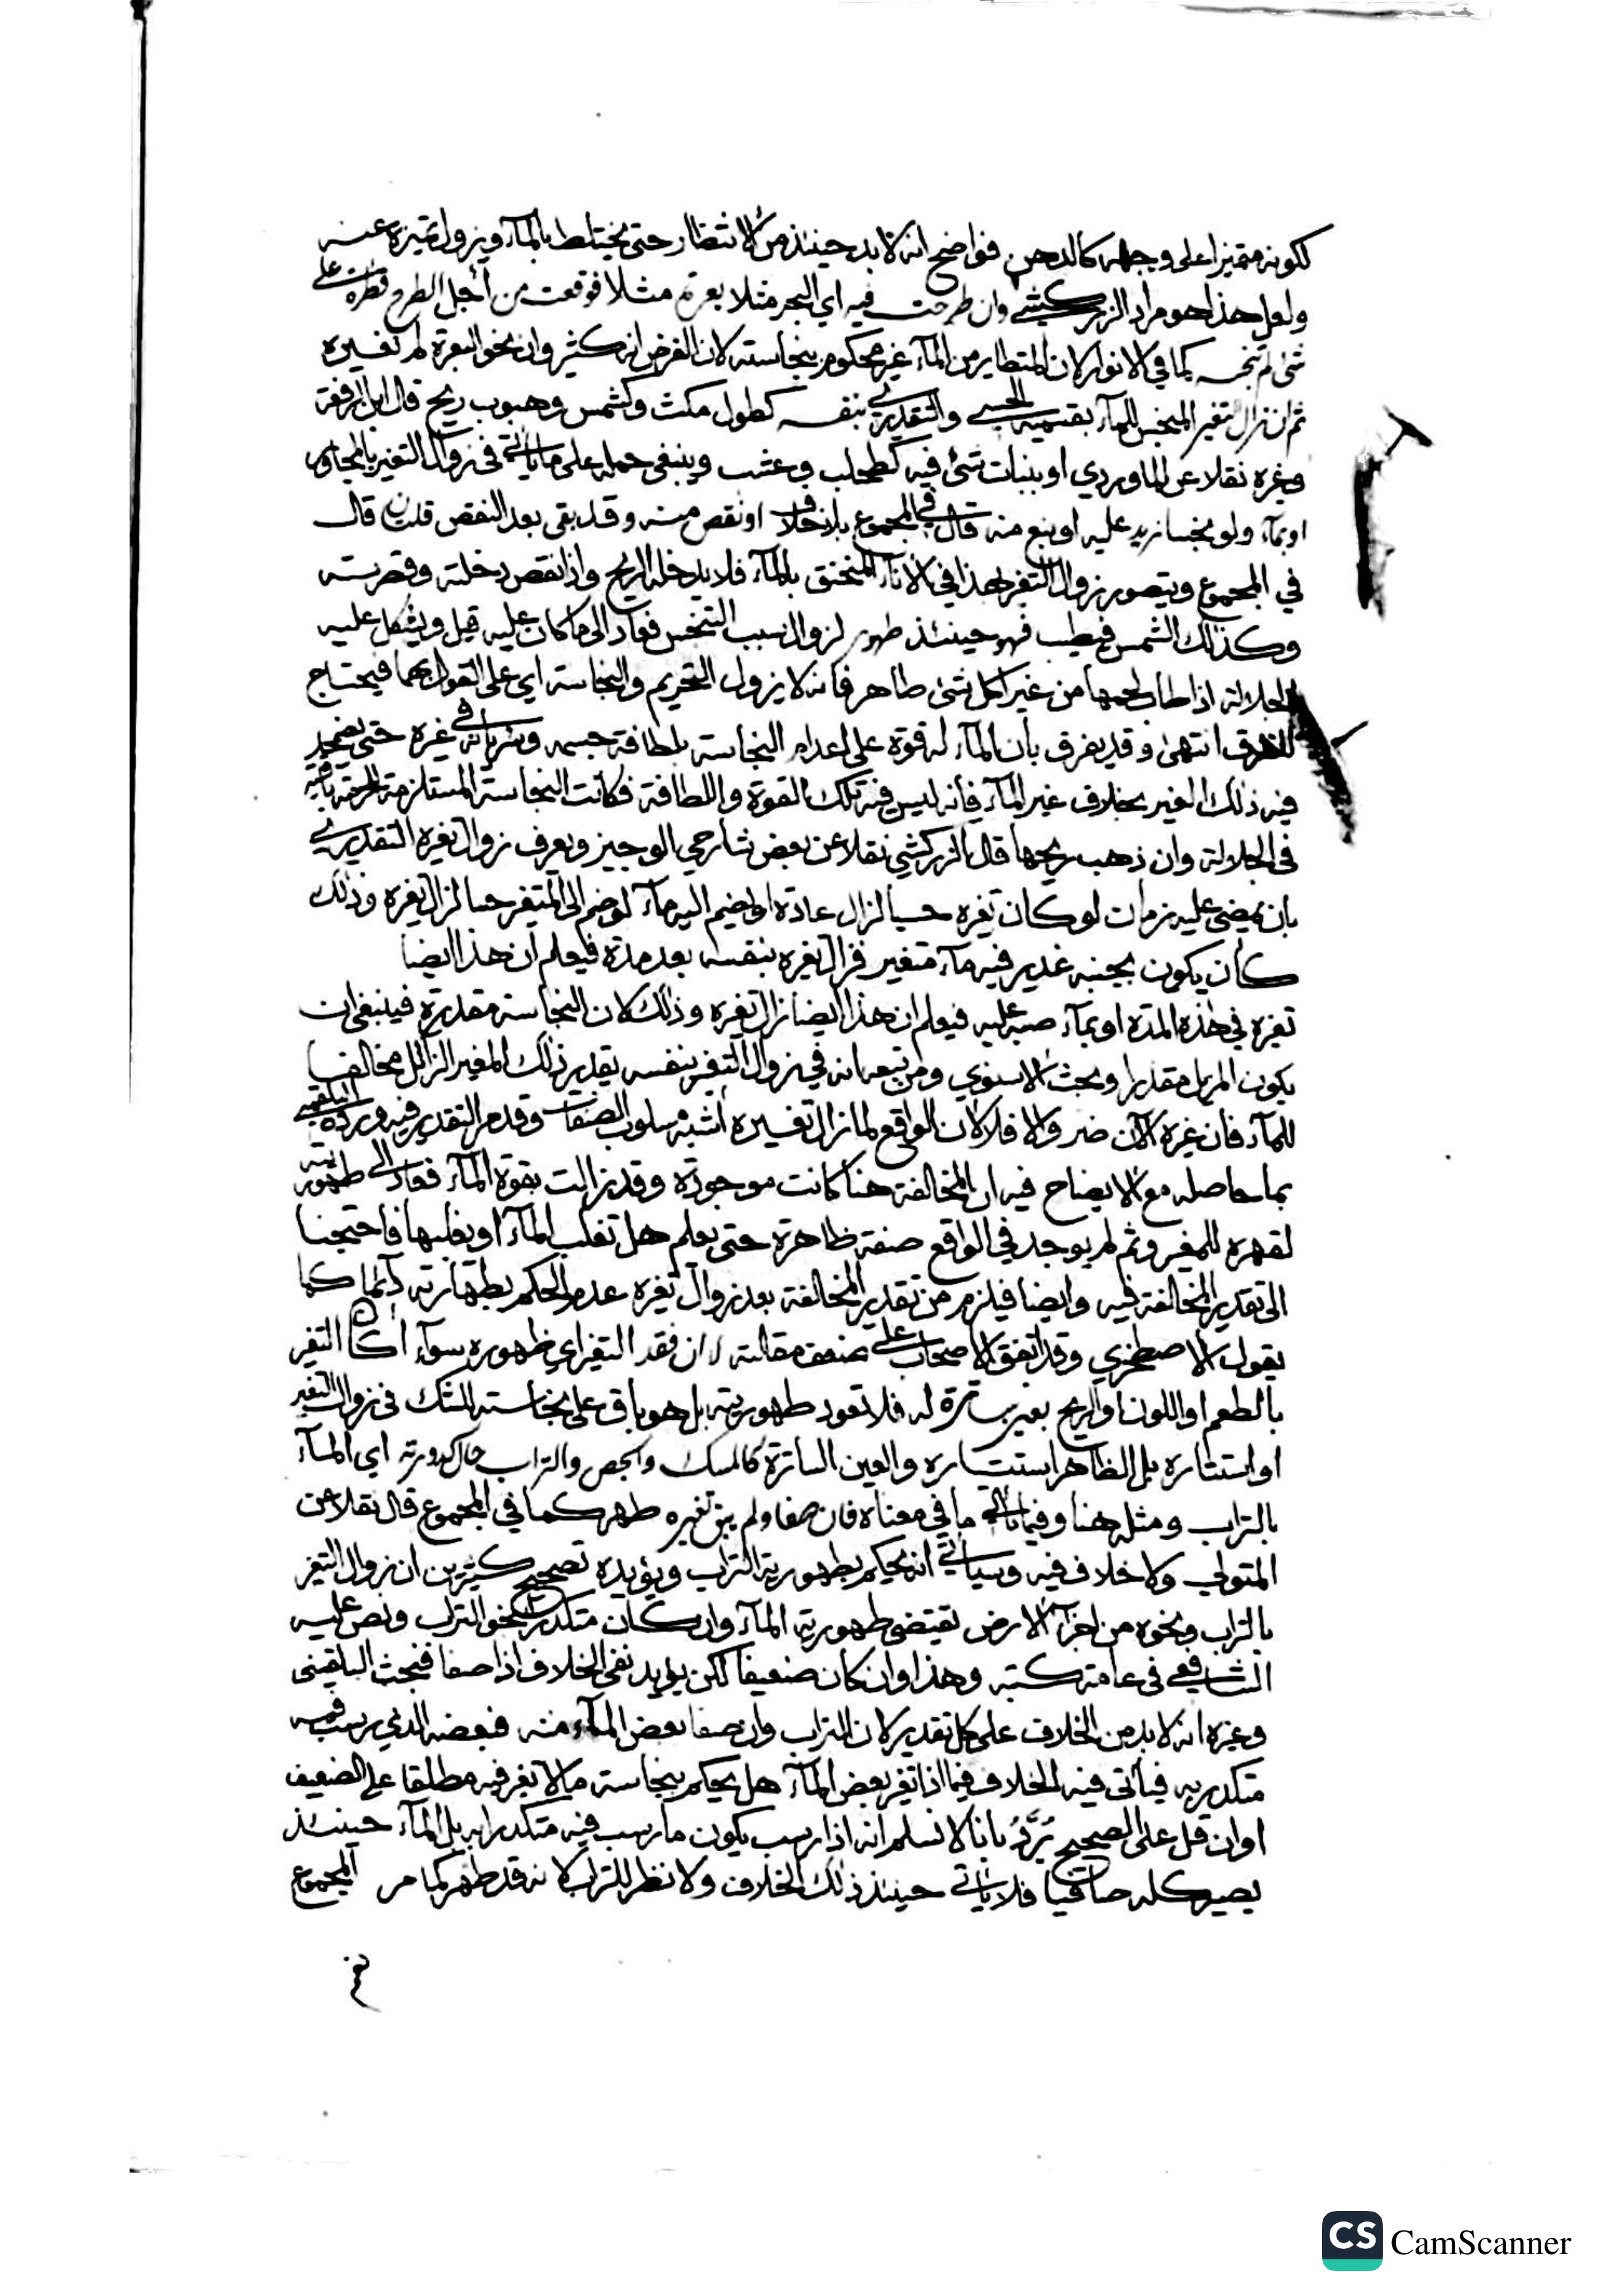 ككونه متميزا على وجهه كالدهن فواضح انه لا بد حينئذ من الانتظار حتى يختلط بالمآء ويزول تميزه عنه
ولعل هذا هو مراد الزركشي وان طرحت فيه اي البحر مثلا بعرة مثلا فوقعت من أجل الطرح قطرة على
شئ لم تنجسه كما في الانوار لان المتطاير من المآء غير محكوم بنجاسته لان الفرض انه كثير وان نحو البعرة لم تغيره
ثم ان زال تغير المتنجس للمآء بقسميه الحسي والتقديري بنفسه كطول مكث وكشمس وهبوب ريح قال ابن الرفعة
وغيره نقلا عن الماوردي او بنبات شئ فيه كطحلب وعشب وينبغي حمله على ما ياتي في زوال التغير بالمجاور
او بمآء ولو نجسا زيد عليه او نبع منه قال في المجموع بلا خلاف او نقص منه وقد بقي بعد النقص قلتان قال
في المجموع ويتصور زوال التغير بهذا في الانآء المنخنق بالمآء فلا يدخله الريح واذا نقص دخلته وقصرته
وكذلك الشمس فيطيب فهو حينئذ طهور لزوال سبب التنجس فعاد الى ما كان عليه قيل ويشكل عليه
الجلالة اذا طاب لحمها من غير اكل شئ طاهر فانه لا يزول التحريم والنجاسة اي على القول بهما فيحتاج
للفرق انتهى وقد يفرق بأن المآء له قوة على اعدام النجاسة بلطافة جسمه وسريانه في غيره حتى يضمحل
فيه ذلك الغير بخلاف غير المآء فأنه ليس فيه تلك القوة واللطافة فكانت النجاسة المستلزمة للحرمة باقية
في الجلالة وان ذهب ريحها قال الزركشي نقلا عن بعض شارحي الوجيز ويعرف زوال تغيره التقديري
بان يمضي عليه زمان لو كان تغيره حسيا لزال عادة او يضم اليه مآء لو ضم الى المتغير حسا لزال تغيره وذلك
كأن يكون بجنبه غدير فيه مآء متغير فزال تغيره بنفسه بعد مدة فيعلم ان هذا ايضا
تغيره في هذه المدة او بمآء صب عليه فيعلم ان هذا ايضا زال تغيره وذلك لان النجاسة مقدرة فينبغي ان
يكون المزيل مقدرا وبحث الاسنوي ومن تبعه انه في زوال التغير بنفسه يقدر ذلك المغير الزائل مخالفا
للمآء فان غيره الآن ضر والا فلا لان الواقع لما زال تغييره أشبه مسلوب الصفات وقد مر التقدير فيه ورده البلقيني
بما حاصله مع الايضاح فيه ان المخالفة هنا كانت موجودة وقد زالت بقوة المآء فعاد الى طهوريته
لقهره للمغير وثم لم يوجد في الواقع صفة ظاهرة حتى يعلم هل تغلب المآء او يغلبها فاحتجنا
الى تقدير المخالفة فيه وايضا فيلزم من تقدير المخالفة بعد زوال تغيره عدم الحكم بطهارته دآئما كما
يقول الاصطخري وقد اتفق الاصحاب على ضعف مقالته لا ان فقد التغير اي ظهوره سوآء أكان التغير
بالطعم او اللون او الريح بعين ساترة له فلا تعود طهوريته بل هو باق على نجاسته للشك في زوال التغير
او استتاره بل الظاهر استتاره والعين الساترة كالمسك والجص والتراب حال كدورته اي المآء
بالتراب ومثله هنا وفيما ياتي ما في معناه فان صفا ولم يبق تغيره طهر كما في المجموع قال نقلا عن
المتولي ولا خلاف فيه وسياتي انه يحكم بطهورية التراب ويؤيده تصحيح كثيرين ان زوال التغير
بالتراب ونحوه من اجزآء الارض تقتضي طهورية المآء وان كان متكدرا بنحو التراب ونص عليه
الشافعي في عامة كتبه وهذا وان كان ضعيفا لكن يؤيد نفي الخلاف اذا صفا فبحث البلقيني
وغيره انه لا بد من الخلاف على كل تقدير لان التراب وان صفا بعض المآء منه فبعضه الذي رسب فيه
متكدر به فيأتي فيه الخلاف فيما اذا تغير بعض المآء هل يحكم بنجاسة ما لا تغير فيه مطلقا على الضعيف
او ان قل على الصحيح يُرَدُّ بانا لا نسلم انه اذا رسب يكون ما رسب فيه متكدرا به بل المآء حينئذ
يصير كله صافيا فلا ياتي حينئذ ذلك الخلاف ولا نظر للتراب لانه قد طهر كما مر المجموع
CS CamScanner